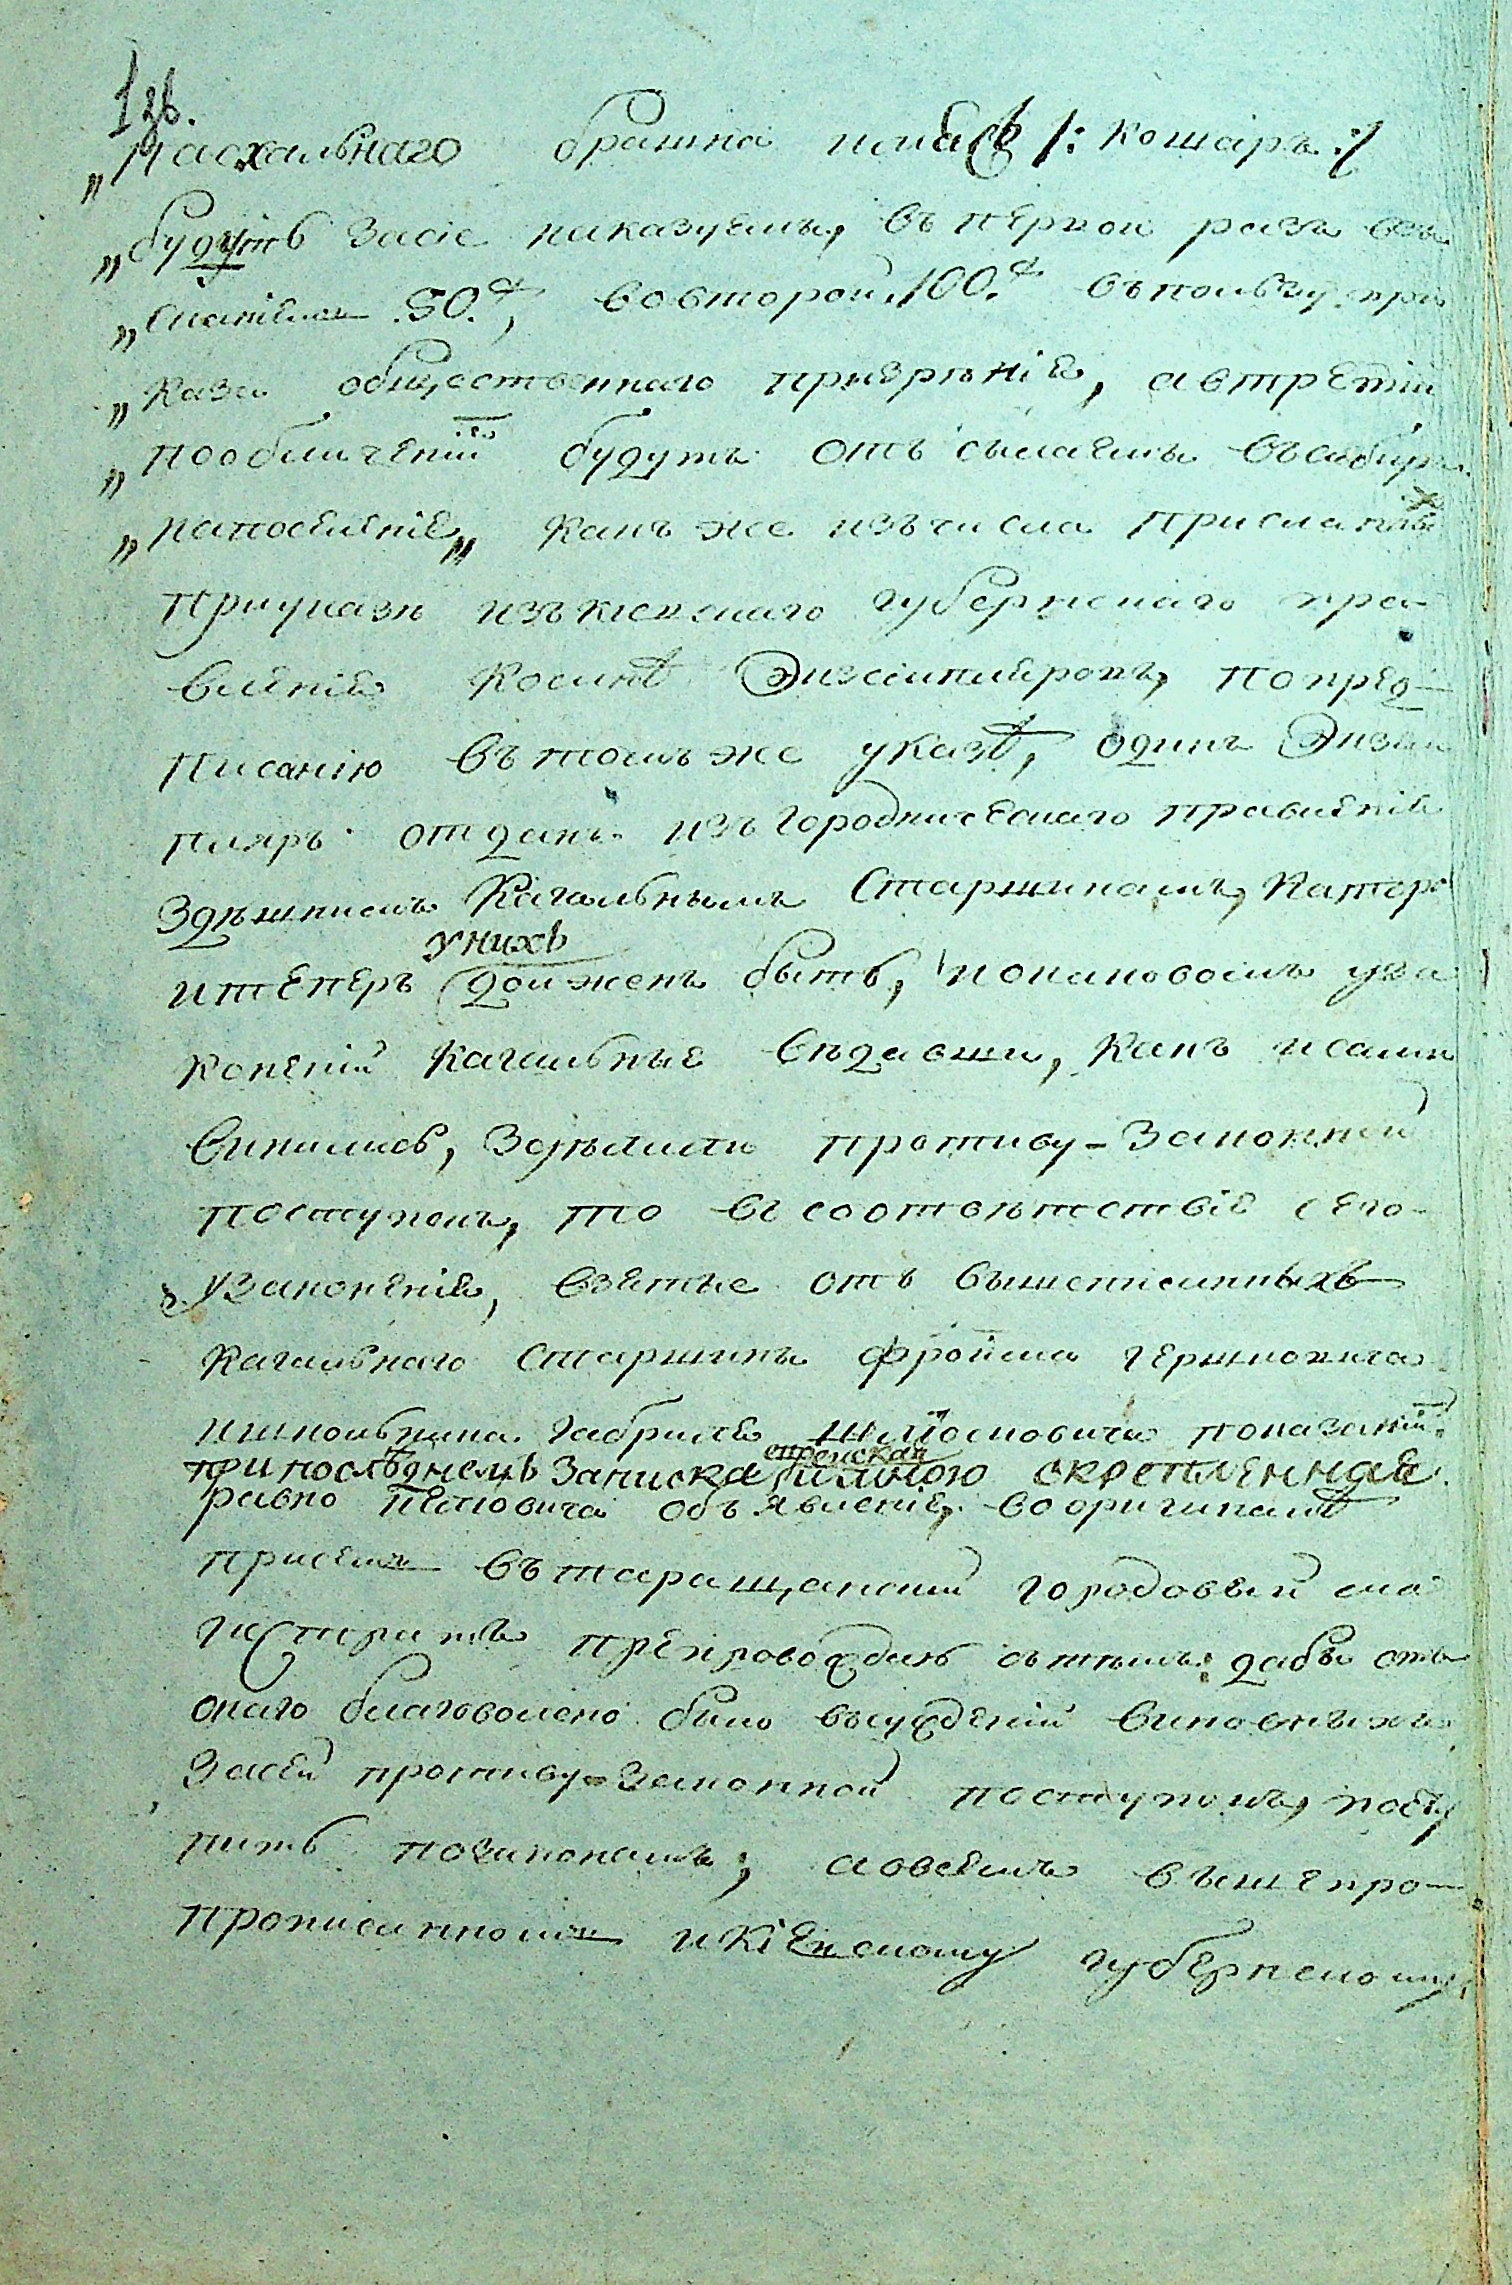 1зв.
„Пасхальнаго брашна и пасъ /: кошаръ :/
„будутъ засіе наказуемы, въ первой разъ взы
„сканіемъ 50. р, вовторой 100. р въ пользу при
„каза общественнаго призрѣнія, автретій
„пообличеніи будутъ отъ сылаемы въсибирь
„напоселеніе„ какъ же изъчисла присланныхъ
приуказѣ изъкіевскаго губернскаго пра
вленія коимъ Экземпляровъ, по пред
писанію въ томъ же указѣ, одинъ Экзем
пляръ отданъ изъ Городническаго правленія
Здѣшнимъ Кагальнымъ Старшинамъ, Которой
у нихъ
итеперъ долженъ быть, о каковомъ уза
коненіи Кагальные вѣдавши, какъ и сами
винились, Здѣлали противу-Законной
поступокъ, то въ соотвѣтствіе сего
узаконенія, взятые отъ вышеписанныхъ
Кагальнаго Старшины Фроима Гершковича
и школьника Габриля Шліомовича показаніи
еврейская
при послѣднемъ записка и мною скрепленная
равно объявленіе, во оригиналѣ
присемъ въ таращанскій городовый ма
гистратъ препровождаю сътѣмъ: дабы отъ
онаго благоволено было въсужденіи виновныхъ
засей противу-законной поступокъ, посту
пить позаконамъ; а овсемъ вышепро
прописанномъ и Кіевскому губернскому